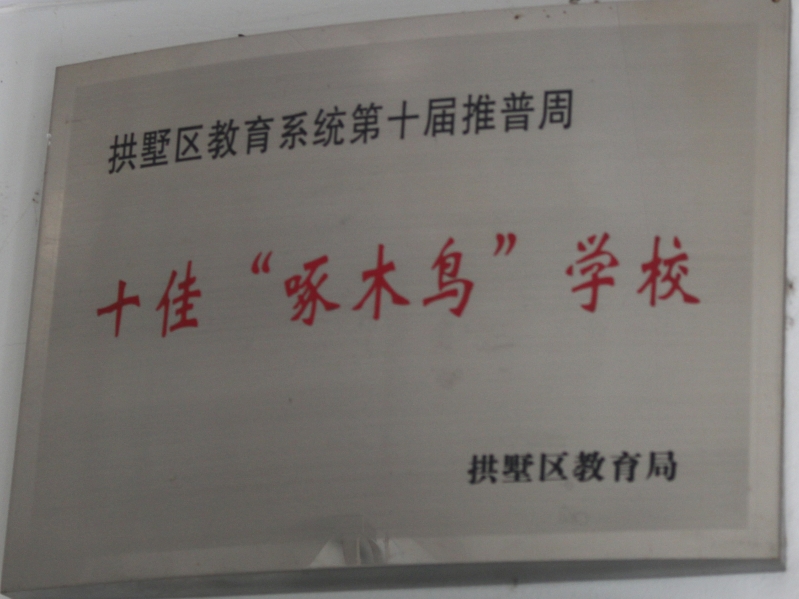 拱墅区教育系统第十届推普周
十佳“啄木鸟”学校
拱墅区教育局